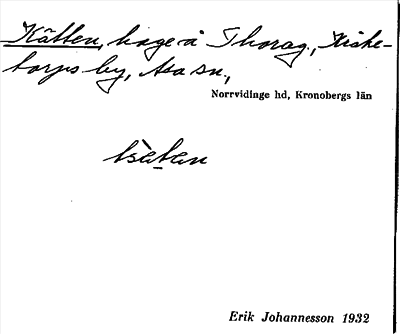 Kätten, hage å Thorag., Kirke-
torps by, Asa sn,
Norrvidinge hd, Kronobergs län
Erik Johannesson 1932